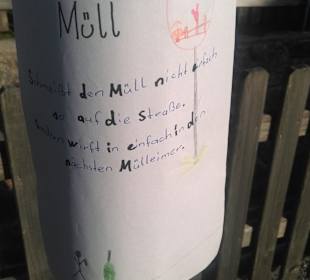 Müll
Schmeißt den Müll nicht einfach
so auf die Straße.
Sondern wirft in einfach in den
nächsten Mülleimer.